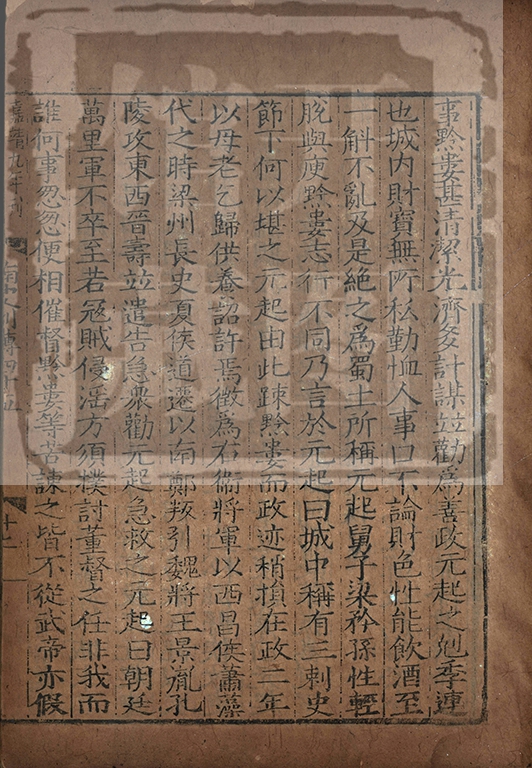 事黔婁甚清潔光濟多計謀並勸為善政元起之尅季連
也城内財寶無所私勤恤人事口不論財色性能飲酒至
一斛不亂及是絶之為蜀土所稱元起舅子梁矜孫性輕
脫與庾黔婁志行不同乃言於元起曰城中稱有三刺史
節下何以堪之元起由此踈黔婁而政迹稍損在政二年
以母老乞歸供養詔許焉徵為右衞將軍以西昌侯蕭藻
代之時梁州長史夏侯道遷以南鄭叛引魏將王景胤孔
陵攻東西晉壽並遣告急衆勸元起急救之元起曰朝廷
萬里軍不卒至若冦賊侵淫方須撲討董督之任非我而
誰何事忽忽便相催督黔婁等苦諫之皆不從武帝亦假
嘉靖九年刊
南史列傳四十五
十二